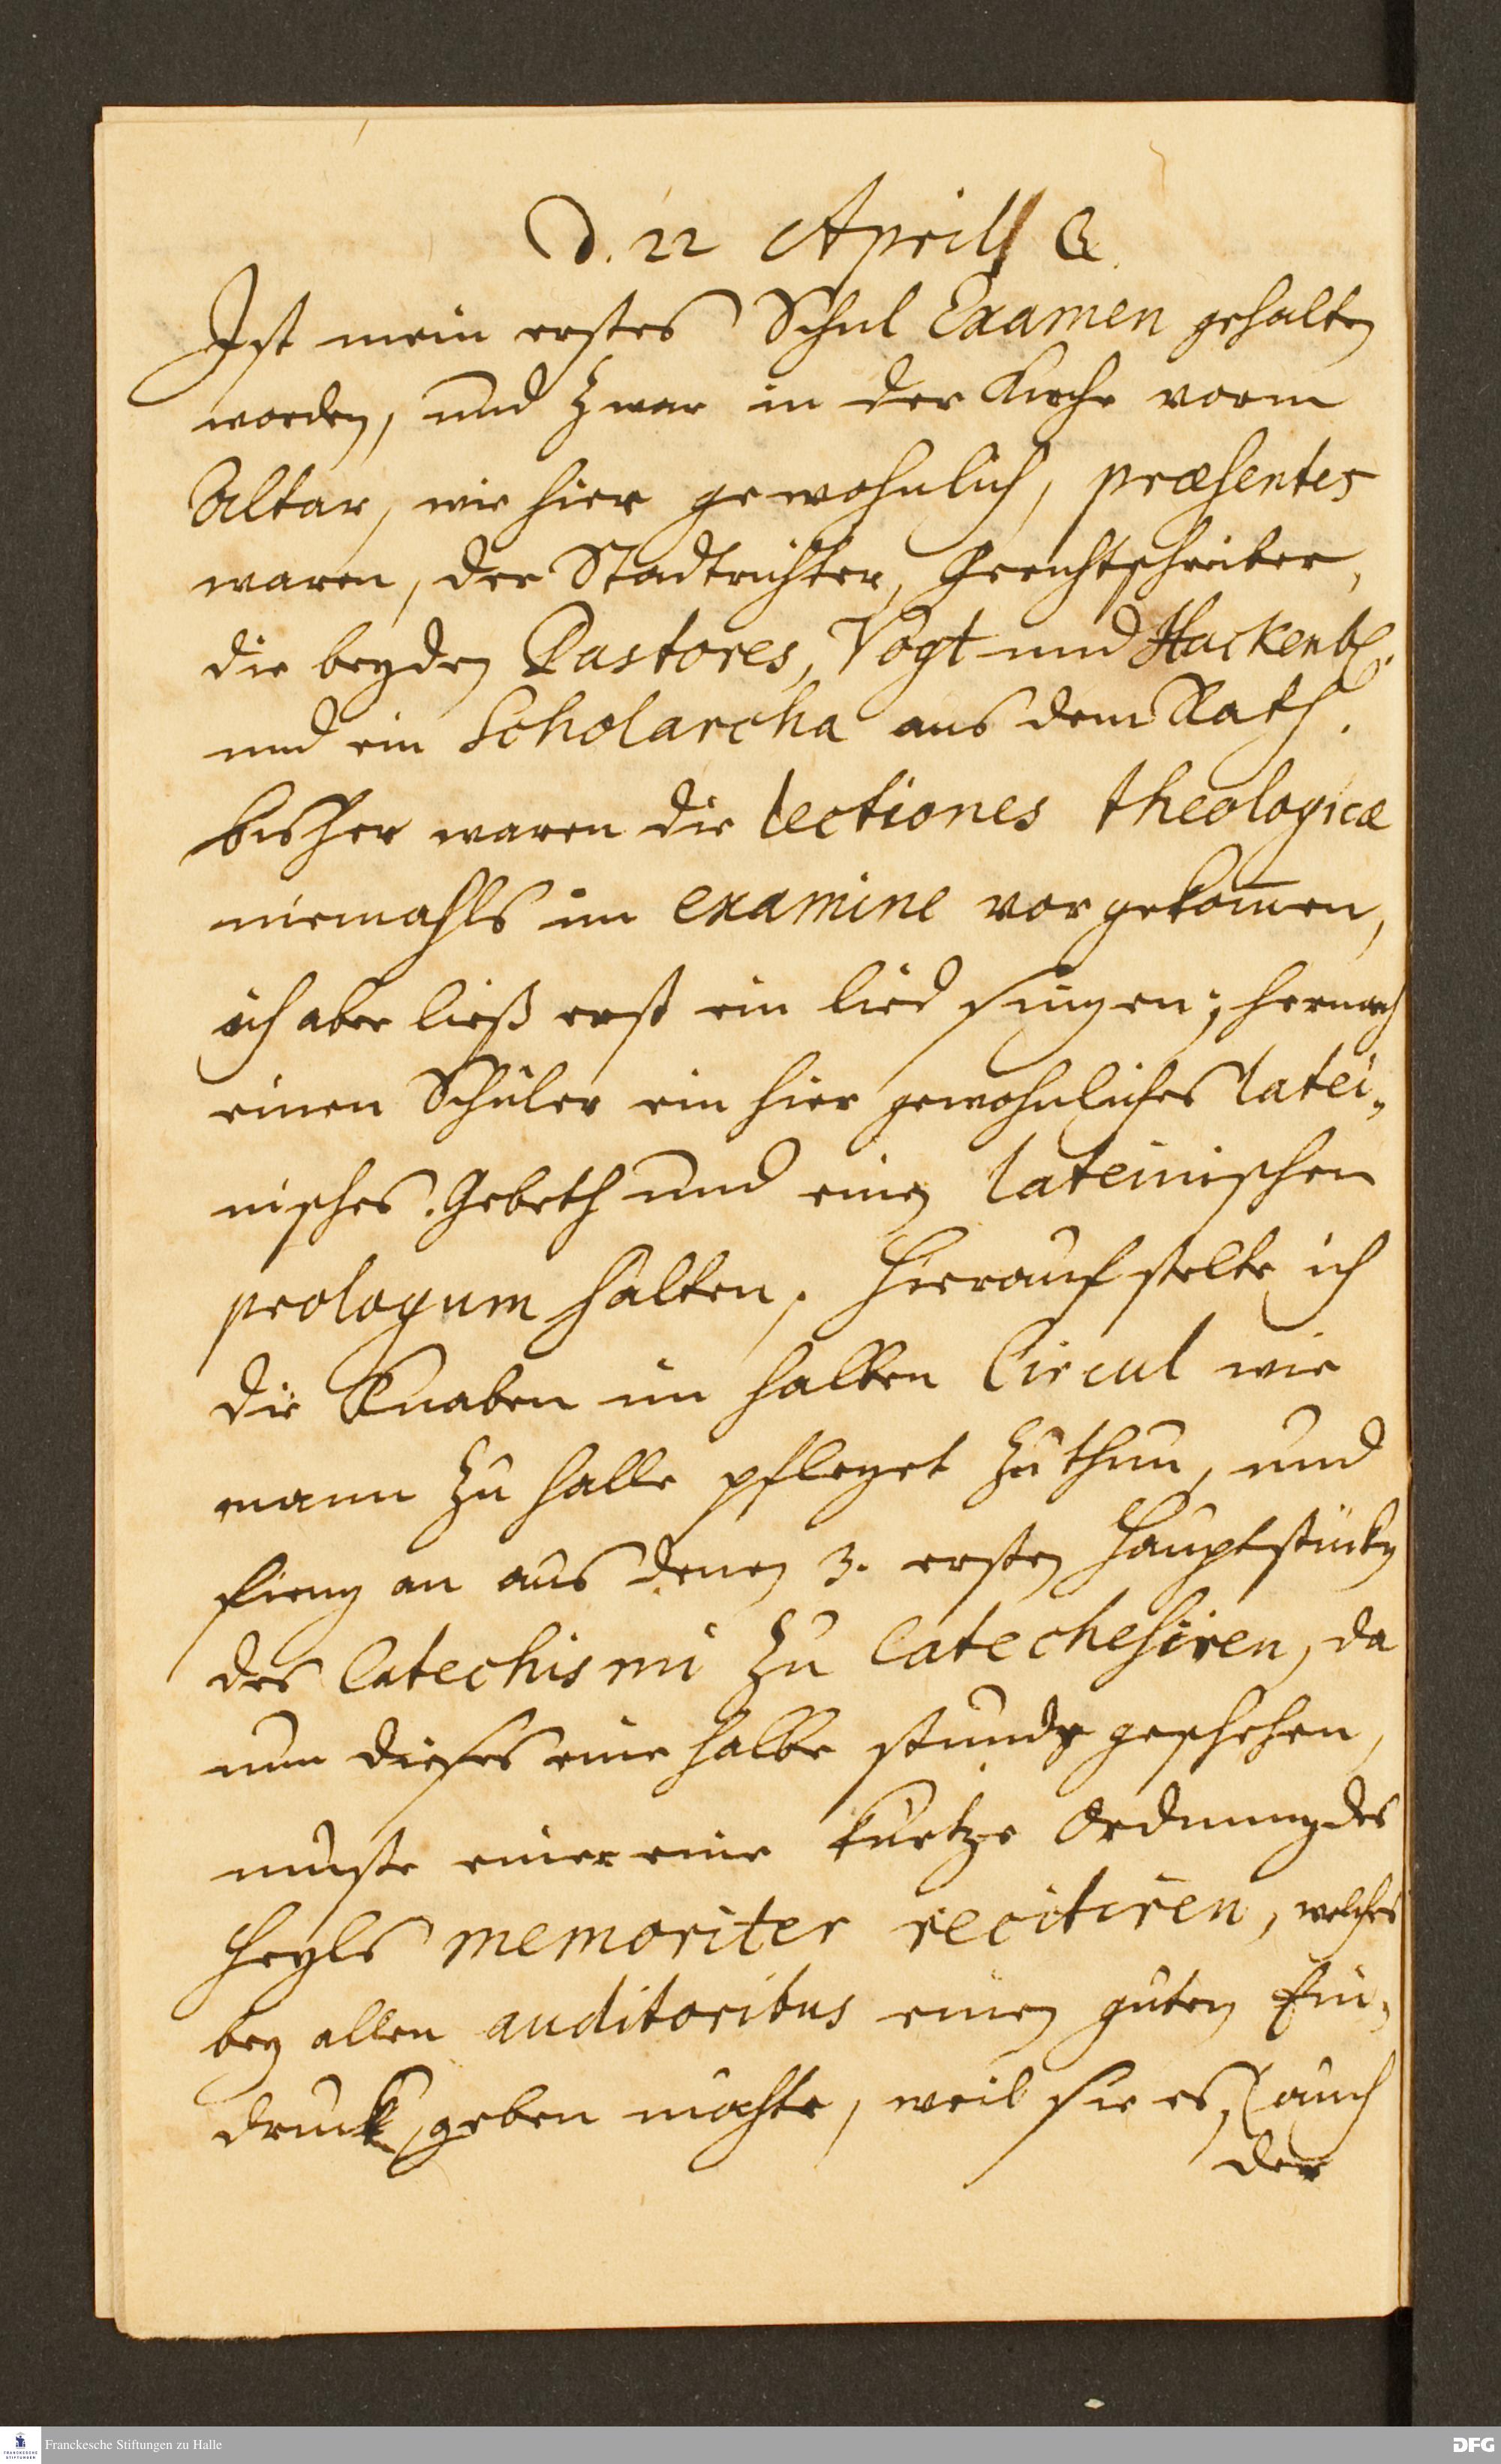 D. 22 April
Ist mein erstes Schul Examen gehalten
worden, und zwar in der Kirche vorm
Altar, wie hier gewohnlich, præsentes
waren, der Stadtrichter, Gerichtschreiber,
die beyden Pastores, Vogt und Hackenb.
und ein Scholarcha aus dem Rath.
bisher waren die lectiones theologicæ
niemahls im examine vorgekom̄en,
ich aber ließ erst ein lied singen; hernach
einen Schüler ein hier gewohnliches latei„
nisches Gebeth und einen lateinischen
prologum halten, hierauf stelte ich
die Knaben im halben Circul wie
mann zu Halle pfleget zu thun, und
fieng an aus denen 3. ersten Hauptstücken
des Catechismi zu catechesiren, da
nun dieses eine halbe stunde geschehen,
muste einer eine kurtze Ordnung des
Heyls memoriter recitiren, welches
bey allen auditoribus einen guten Ein„
druck geben mochte, weil sie es, auch
der
Franckesche Stiftungen zu Halle
FRANCKESCHE STIFTUNGEN
DFG